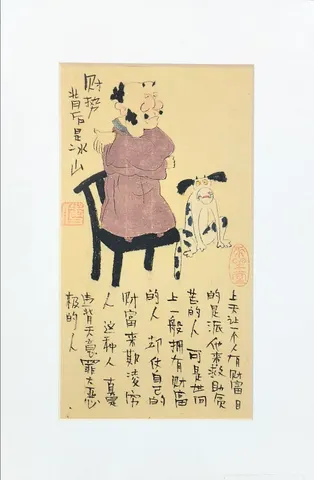 财势
背后是冰山
上天让一个人有财富目
的是派他来救助贫
苦的人 可是世间
上一般拥有财富
的人 却 自己的
财富来欺凌穷
人 这种人 真是
违背天意罪大恶
极的人